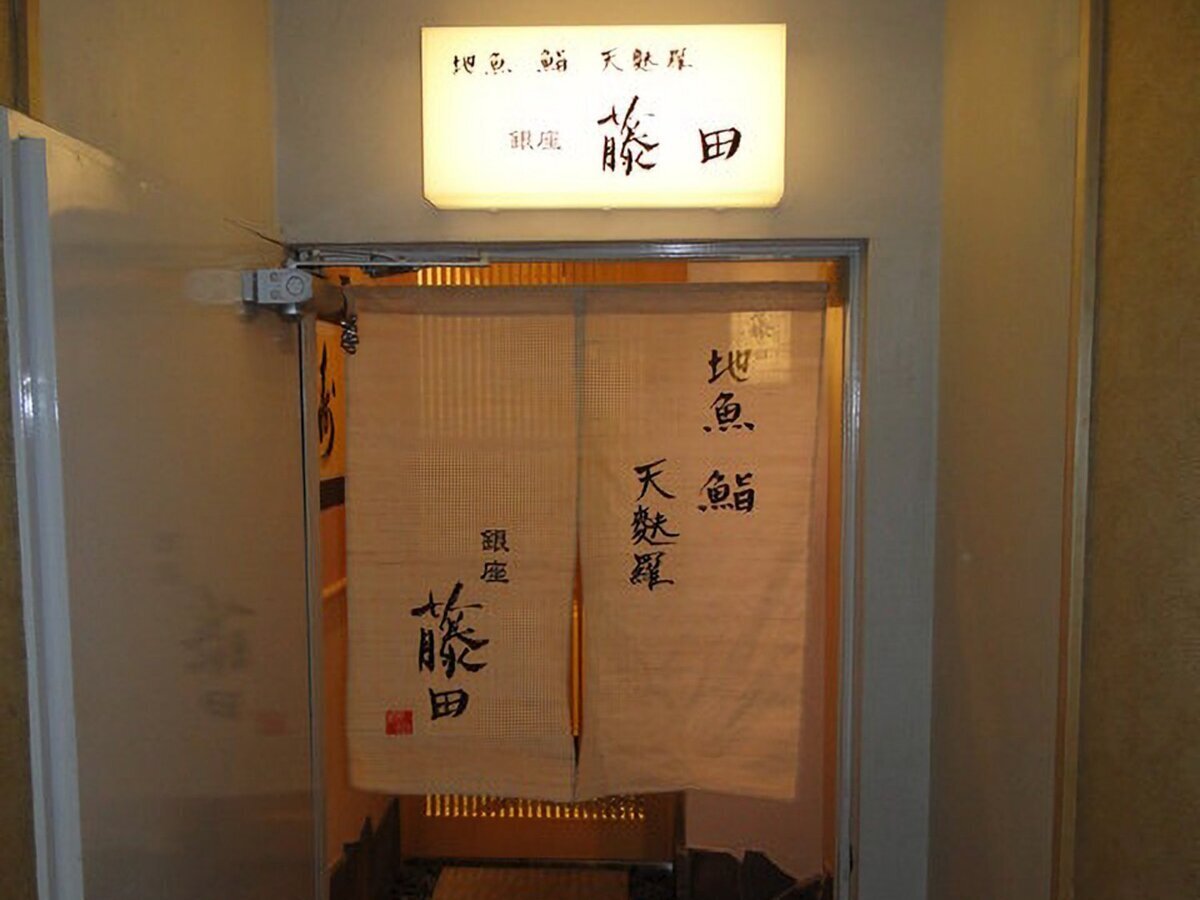 地魚 鮨 天麩羅
銀座 藤田
地魚 鮨
天麩羅
銀座
藤田